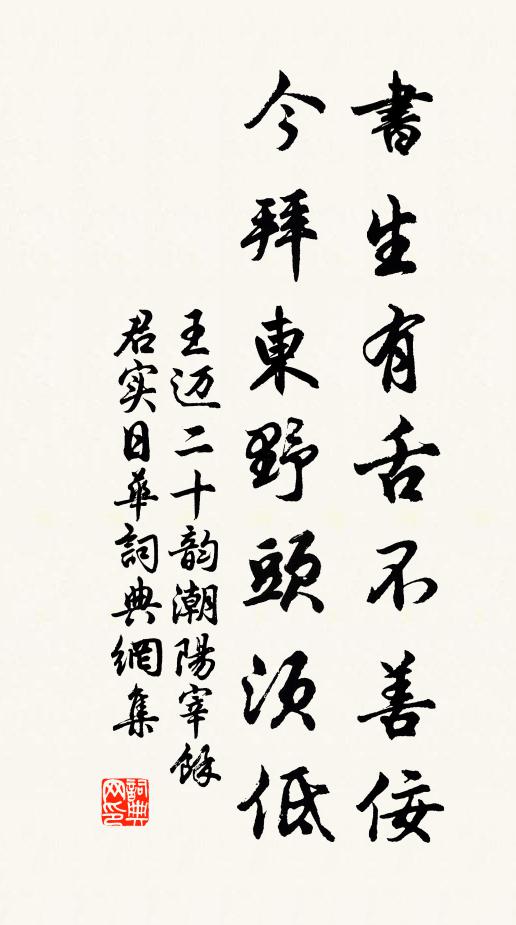 書生有舌不善佞
今拜東野頭須低
王迈二十韵潮陽宰餘
君实日華詞典網集
詞典网印